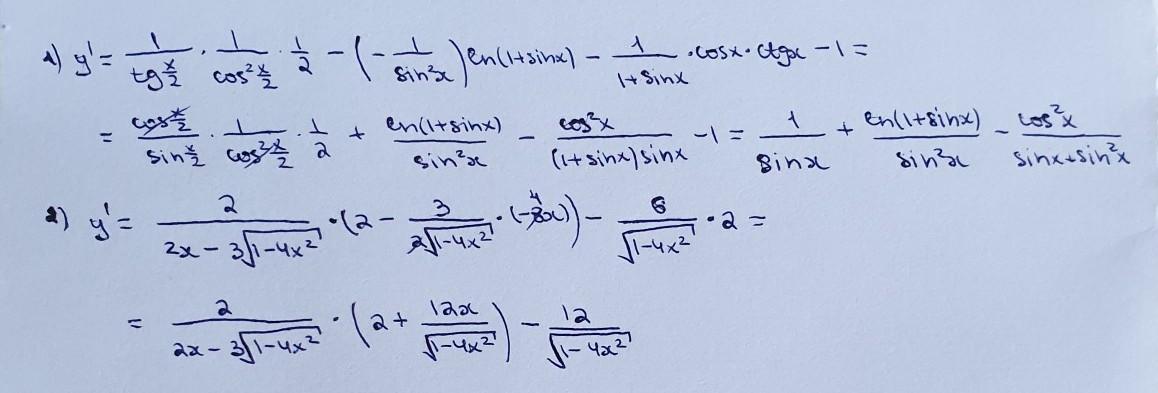 1) y' = 1/(tg x/2) · 1/(cos² x/2) · 1/2 − (− 1/(sin²x)) ln(1+sinx) − 1/(1+sinx) · cosx · ctgx − 1 =
= (cos x/2)/(sin x/2) · 1/(cos² x/2) · 1/2 + ln(1+sinx)/(sin²x) − cos²x/((1+sinx) sinx) − 1 = 1/(sinx) + ln(1+sinx)/(sin²x) − cos²x/(sinx+sin²x)
2) y' = 2/(2x − 3√(1−4x²)) · (2 − 3/(2√(1−4x²)) · (−8x) 4) − 6/√(1−4x²) · 2 =
= 2/(2x − 3√(1−4x²)) · (2 + 12x/√(1−4x²)) − 12/√(1−4x²)